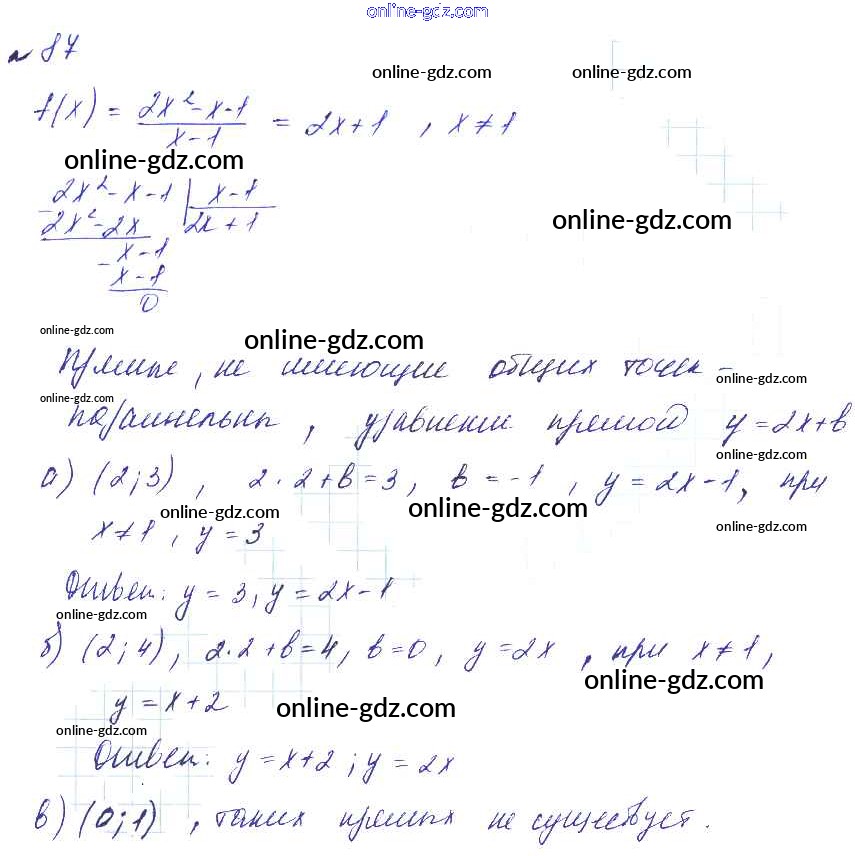 online-gdz.com
№ 87
online-gdz.com online-gdz.com
f(x) = (2x² - x - 1)/(x - 1) = 2x + 1 , x ≠ 1
online-gdz.com
2x² - x - 1 | x - 1
2x² - 2x | 2x + 1
online-gdz.com
- x - 1
x - 1
0
online-gdz.com online-gdz.com
Прямые, не имеющие общих точек -
online-gdz.com online-gdz.com
параллельны, уравнение прямой y = 2x + b
online-gdz.com
а) (2; 3) , 2 · 2 + b = 3, b = -1 , y = 2x - 1, при
online-gdz.com online-gdz.com online-gdz.com
x ≠ 1 , y = 3
Ответ: y = 3, y = 2x - 1
online-gdz.com online-gdz.com
б) (2; 4), 2 · 2 + b = 4, b = 0, y = 2x , при x ≠ 1,
online-gdz.com
y = x + 2
online-gdz.com online-gdz.com
Ответ: y = x + 2 ; y = 2x
в) (0; 1) , таких прямых не существует.